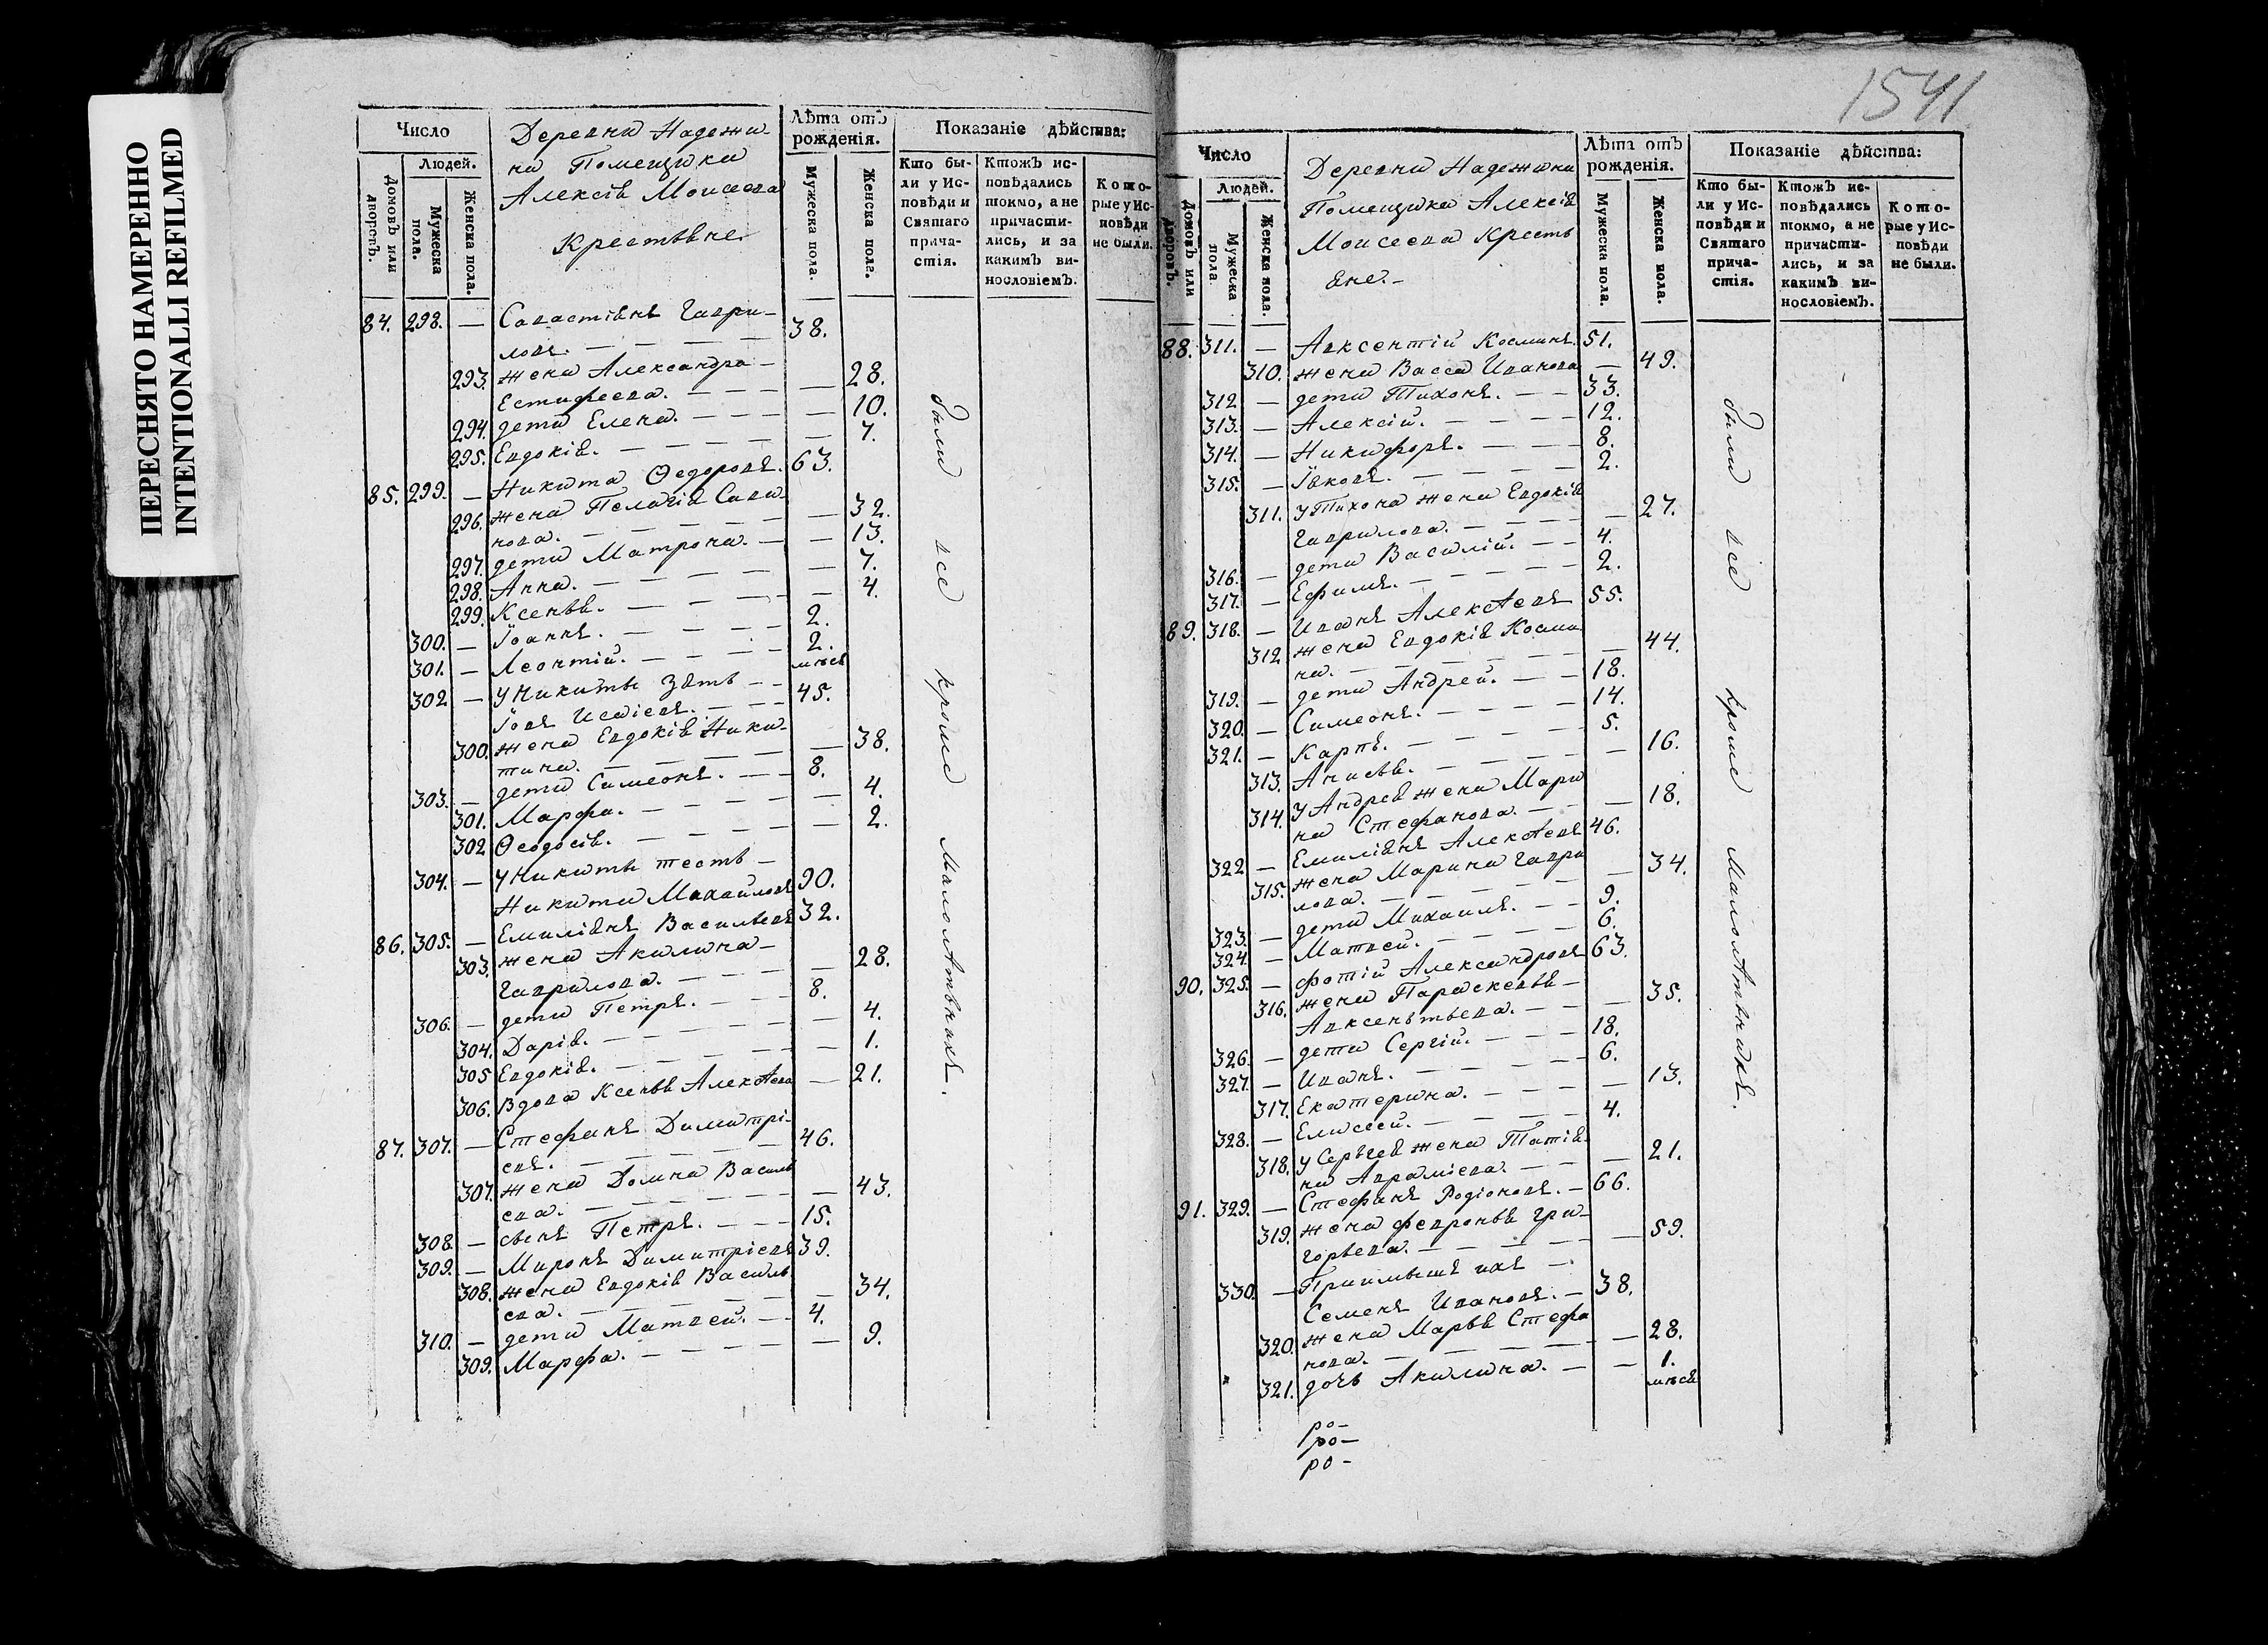 ПЕРЕСНЯТО НАМЕРЕННО
INTENTIONALLI REFILMED
1541
Число
Людей.
Домовъ или дворовъ.
Мужеска пола.
Женска пола.
Деревни Надежи-
ны Помещика
Алексѣя Моисеева
Крестьяне
Лѣта отъ рожденія.
Мужеска пола.
Женска пола.
Показаніе дѣйства:
Кто бы-
ли у Ис-
повѣди и
Святаго
прича-
стія.
Ктожъ ис-
повѣдались
токмо, а не
причасти-
лись, и за
какимъ ви-
нословіемъ.
Кото-
рые у Ис-
повѣди
не были.
84. 298. — Савастіянъ Гаври-
ловъ. — 38.
293. жена Александра —
Естифеева. — 28.
294. дети Елена. — 10.
295. Евдокія. — 7.
85. 299. — Никита Ѳедоровъ. 63.
296. жена Пелагія Сави-
нова. — 32.
297. дети Матрона. — 13.
298. Анна. — 7.
299. Ксенья. — 4.
300. — Іоаннъ. — 2.
301. — Леонтій. — 2. мѣся
302 — У Никиты зять —
Іовъ Исаіевъ. — 45.
300. жена Евдокія Ники-
тина. — 38.
303. — дети Симеонъ. — 8.
301. Марфа. — 4.
302 Ѳеодосія. — 2.
304. — У Никиты тесть —
Никита Михайловъ 90.
86. 305. — Емиліянъ Васильевъ 32.
303. жена Акилина —
Гаврилова. — 28.
306. — дети Петръ. — 8.
304. Дарія. — 4.
305 Евдокія. — 1.
306. Вдова Ксенья Алексѣева — 21.
87. 307. — Стефанъ Димитрі-
евъ. — 46.
307. жена Домна Василь
ева. — 43.
308. — сынъ Петръ. — 15.
309. — Миронъ Димитріевъ 39.
308. жена Евдокія Василь
ева. — 34.
310. — дети Матвей. — 4.
309. Марфа. — 9.
были все кроме малолѣтныхъ.
Число
Людей.
Домовъ или дворовъ.
Мужеска пола.
Женска пола.
Деревни Надежины
Помещика Алексія
Моисеева Кресть
яне. —
Лѣта отъ рожденія.
Мужеска пола.
Женска пола.
Показаніе дѣйства:
Кто бы-
ли у Ис-
повѣди и
Святаго
прича-
стія.
Ктожъ ис-
повѣдались
токмо, а не
причасти-
лись, и за
какимъ ви-
нословіемъ.
Кото-
рые у Ис-
повѣди
не были.
88. 311. — Авксентій Косминъ. 51.
310. жена Васса Иванова — 49.
312 — дети Тихонъ. — 33.
313. — Алексій. — 12.
314. — Никифоръ. — 8.
315. — Іяковъ. — 2.
311. У Тихона жена Евдокія
Гаврилова. — 27.
316. — дети Василій. — 4.
317. — Ефимъ. — 2.
89. 318. — Иванъ Алексѣевъ 55.
312 жена Евдокія Косми
на. — 44.
319. — дети Андрей. — 18.
320. — Симеонъ. — 14.
321. — Карпъ. — 5.
313. Анисья. — 16.
314. У Андрея жена Мари
на Стефанова. — 18.
322 — Емиліянъ Алексѣевъ 46.
315. жена Марина Гаври
лова. — 34.
323. — дети Михаилъ. — 9.
324. — Матвей. — 6.
90. 325. — Фотій Александровъ 63.
316. жена Параскевья —
Авксентьева. — 35.
326. — дети Сергій. — 18.
327. — Иванъ. — 6.
317. Екатерина. — 13.
328. — Елисей. — 4.
318. У Сергѣя жена Татія-
на Авраміева. — 21.
91. 329. — Стефанъ Родіоновъ. — 66.
319. жена Февронья Гри-
горьева. — 59.
330. — Приимышъ ихъ —
Семенъ Ивановъ. — 38.
320. жена Марья Стефа
нова. — 28.
321. дочь Акилина. — 1. мѣся
были все кроме малолѣтныхъ.
ро-
ро-
ро-